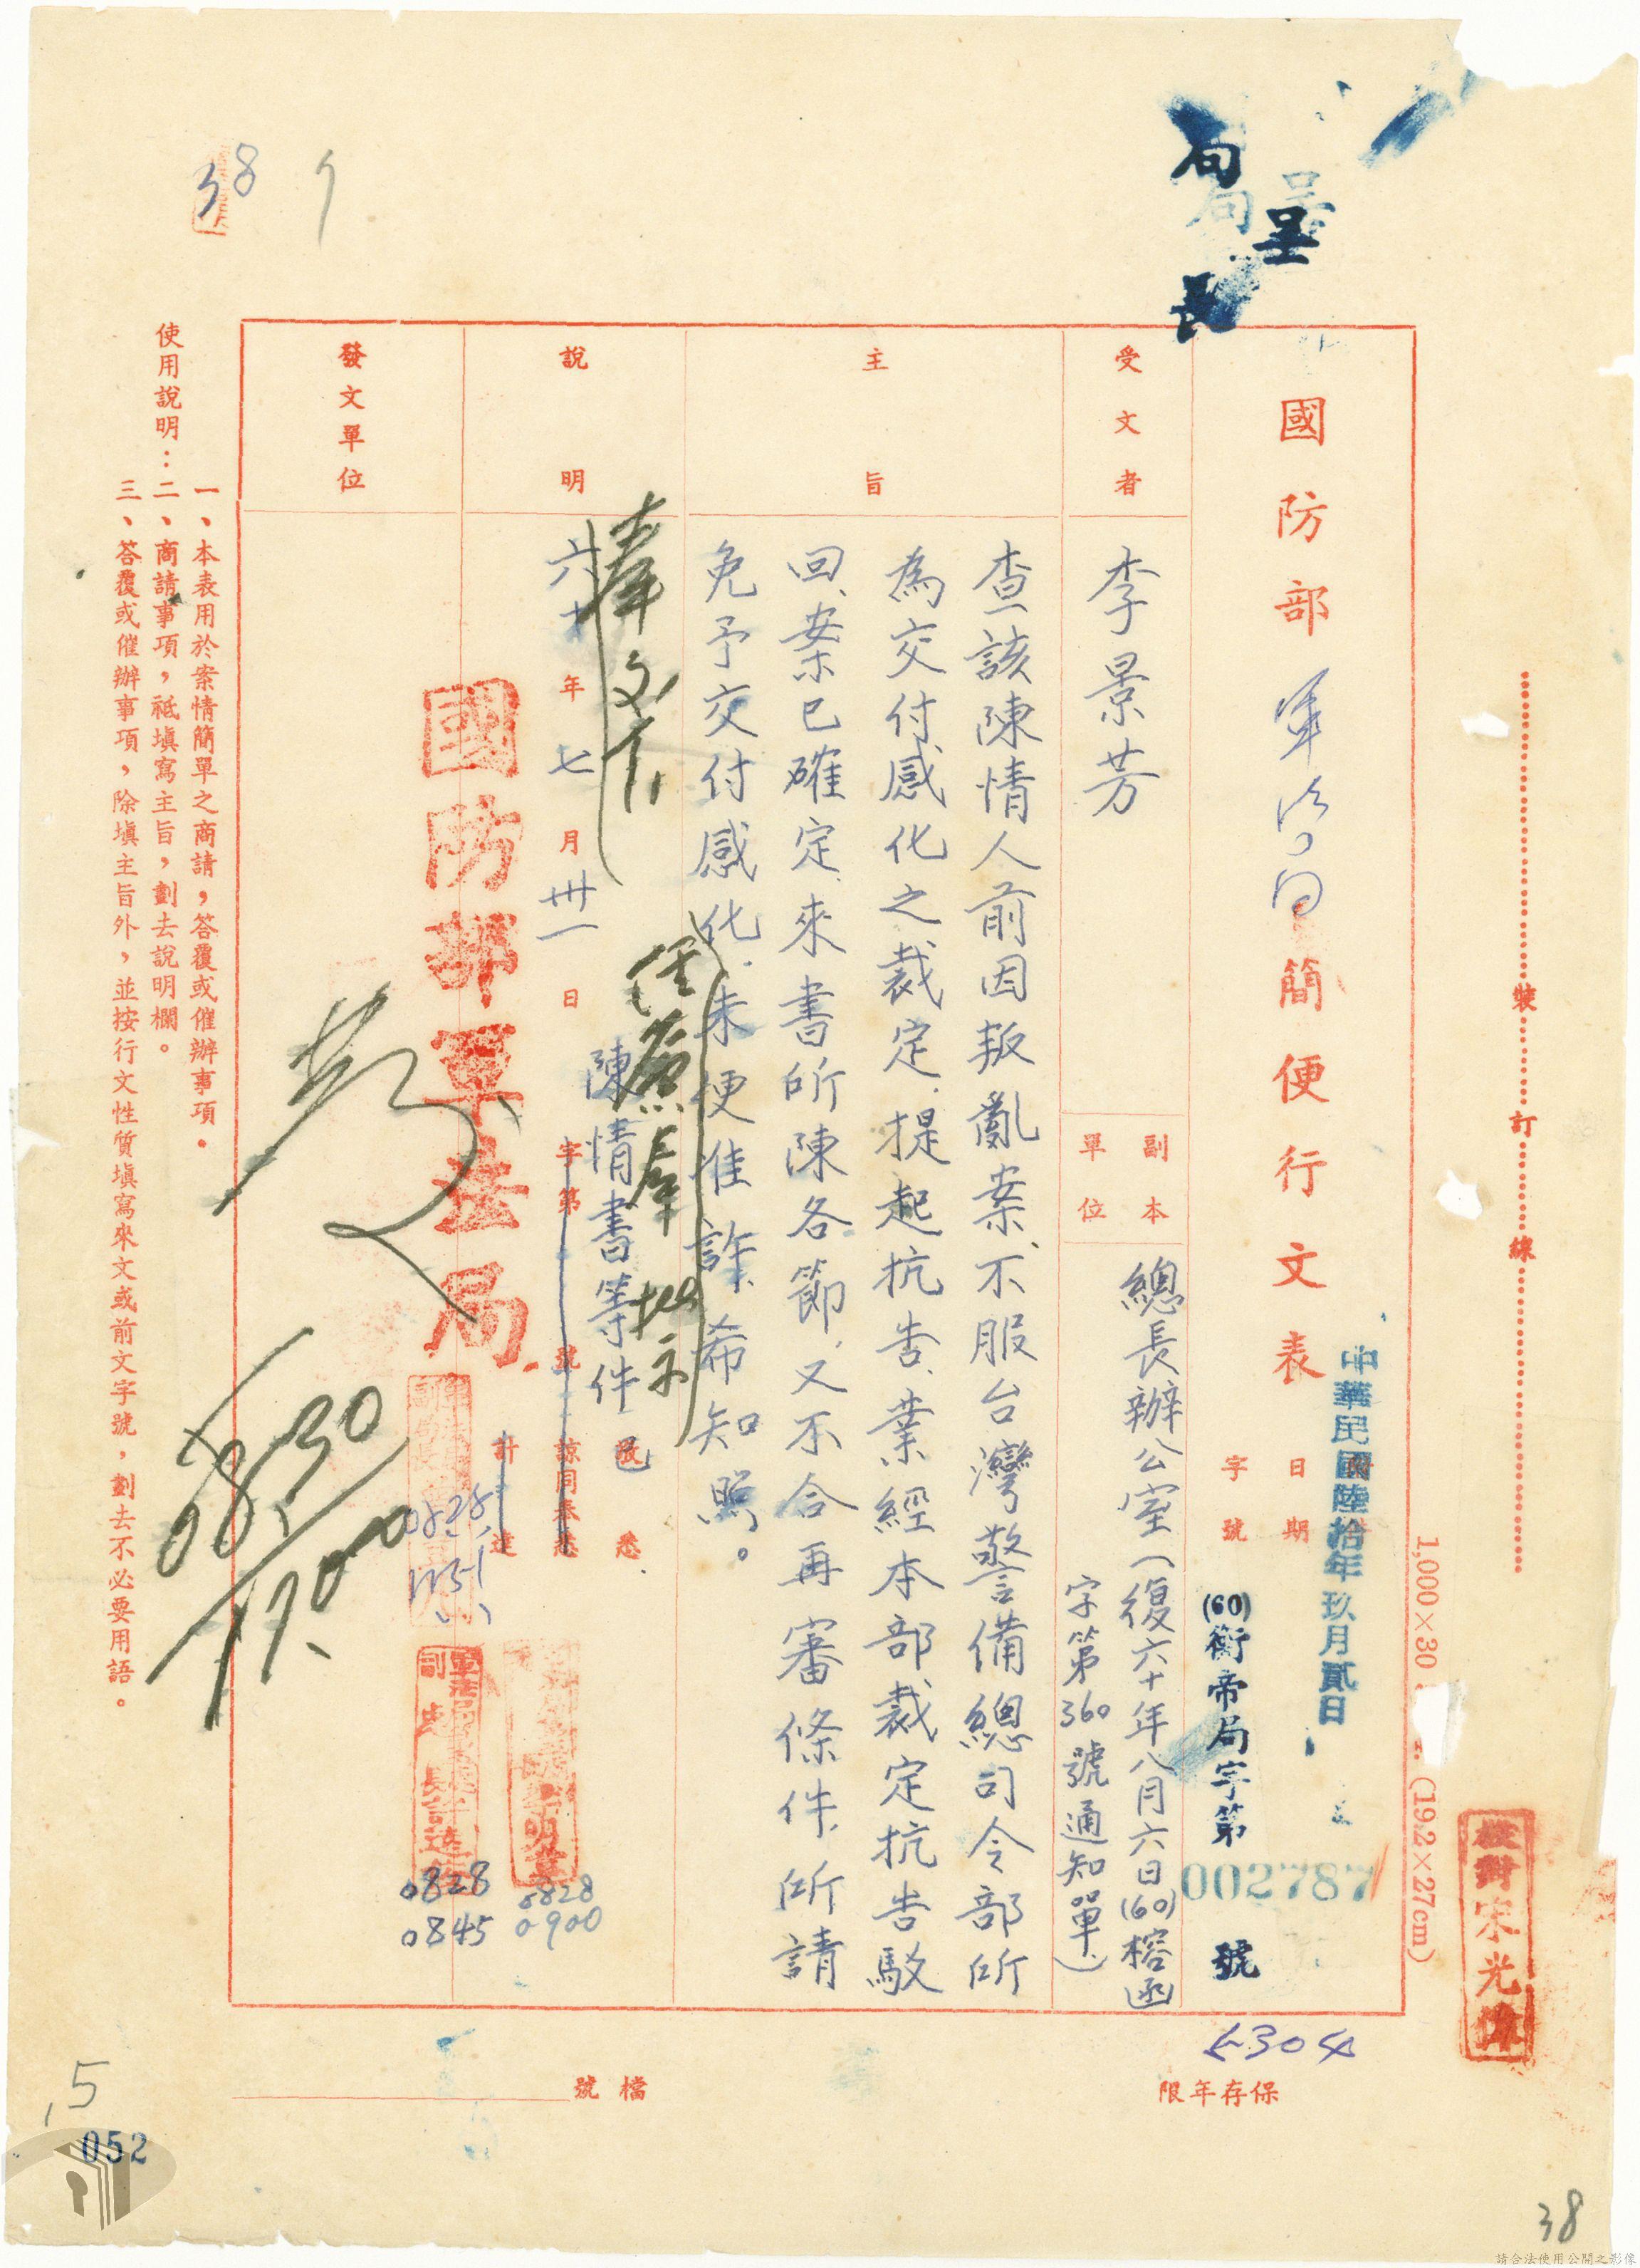 局長
呈
裝 訂 線
校對宋光偉
1,000×30
(19.2×27cm)
國防部軍法局簡便行文表
中華民國陸拾年玖月貳日
日期
字號
(60)衡帝局字第002787號
受文者
李景芳
副本單位
總長辦公室(復六十年八月六日(60)榕函
字第360號通知單、)
主旨
查該陳情人前因叛亂案、不服台灣警備總司令部所
為交付感化之裁定、提起抗告、業經本部裁定抗告駁
回、案已確定、來書所陳各節、又不合再審條件、所請
免予交付感化、未便准許、希知照。
說明
六十年七月卅一日
字第 號
陳情書等件
已
敬悉
諒同奉悉
計達
發文單位
國防部軍法局
0828
1151
0828
0845
0828
0900
0830
1700
使用說明：
一、本表用於案情簡單之商請，答覆或催辦事項。
二、商請事項，祗填寫主旨，劃去說明欄。
三、答覆或催辦事項，除填主旨外，並按行文性質填寫來文或前文字號，劃去不必要用語。
保存年限
檔號
38
5
052
38
請合法使用公開之影像